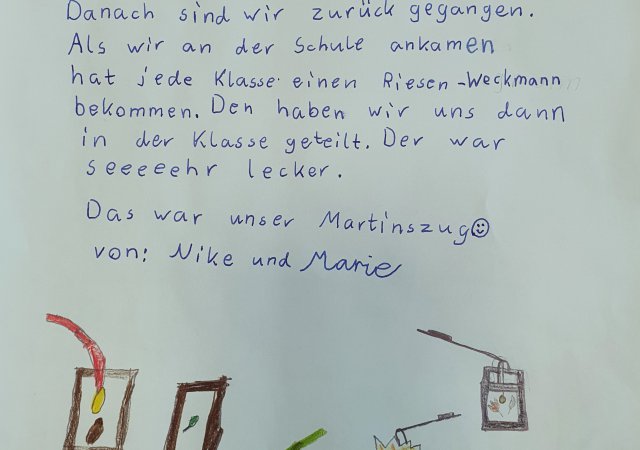 Danach sind wir zurück gegangen.
Als wir an der Schule ankamen
hat jede Klasse einen Riesen-Weckmann
bekommen. Den haben wir uns dann
in der Klasse geteilt. Der war
seeeeehr lecker.
Das war unser Martinszug☺
von: Nike und Marie